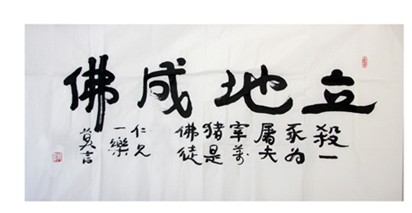 立地成佛
殺一
豕为
屠夫
宰萬
猪是
佛徒
仁兄
一樂
莫言